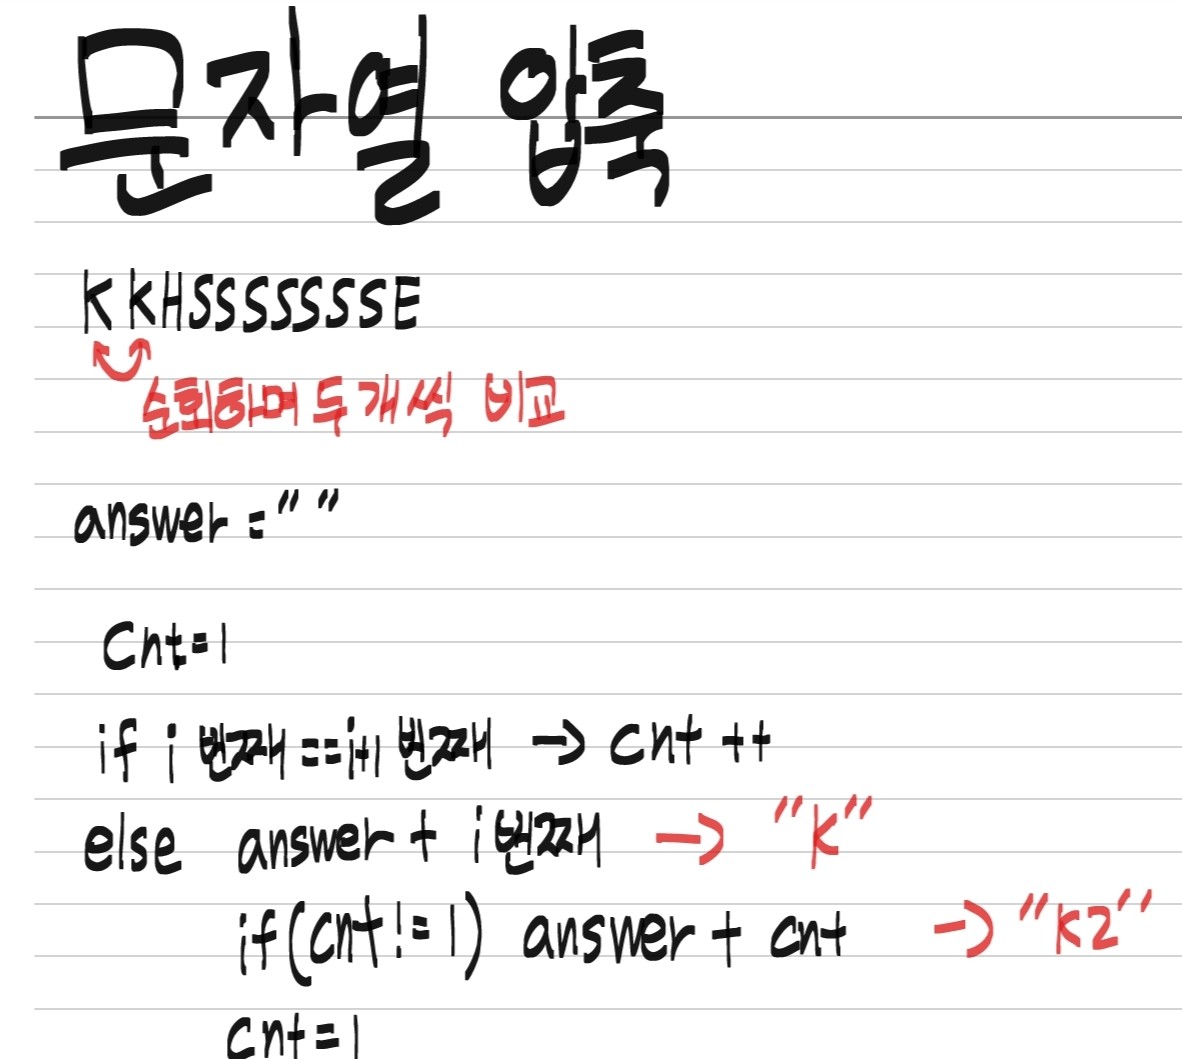 문자열 압축
KKHSSSSSSSE
순회하며 두개씩 비교
answer = " "
Cnt=1
if i번째==i+1번째 → cnt ++
else answer + i번째 → "K"
if(cnt!=1) answer + cnt → "K2"
cnt=1